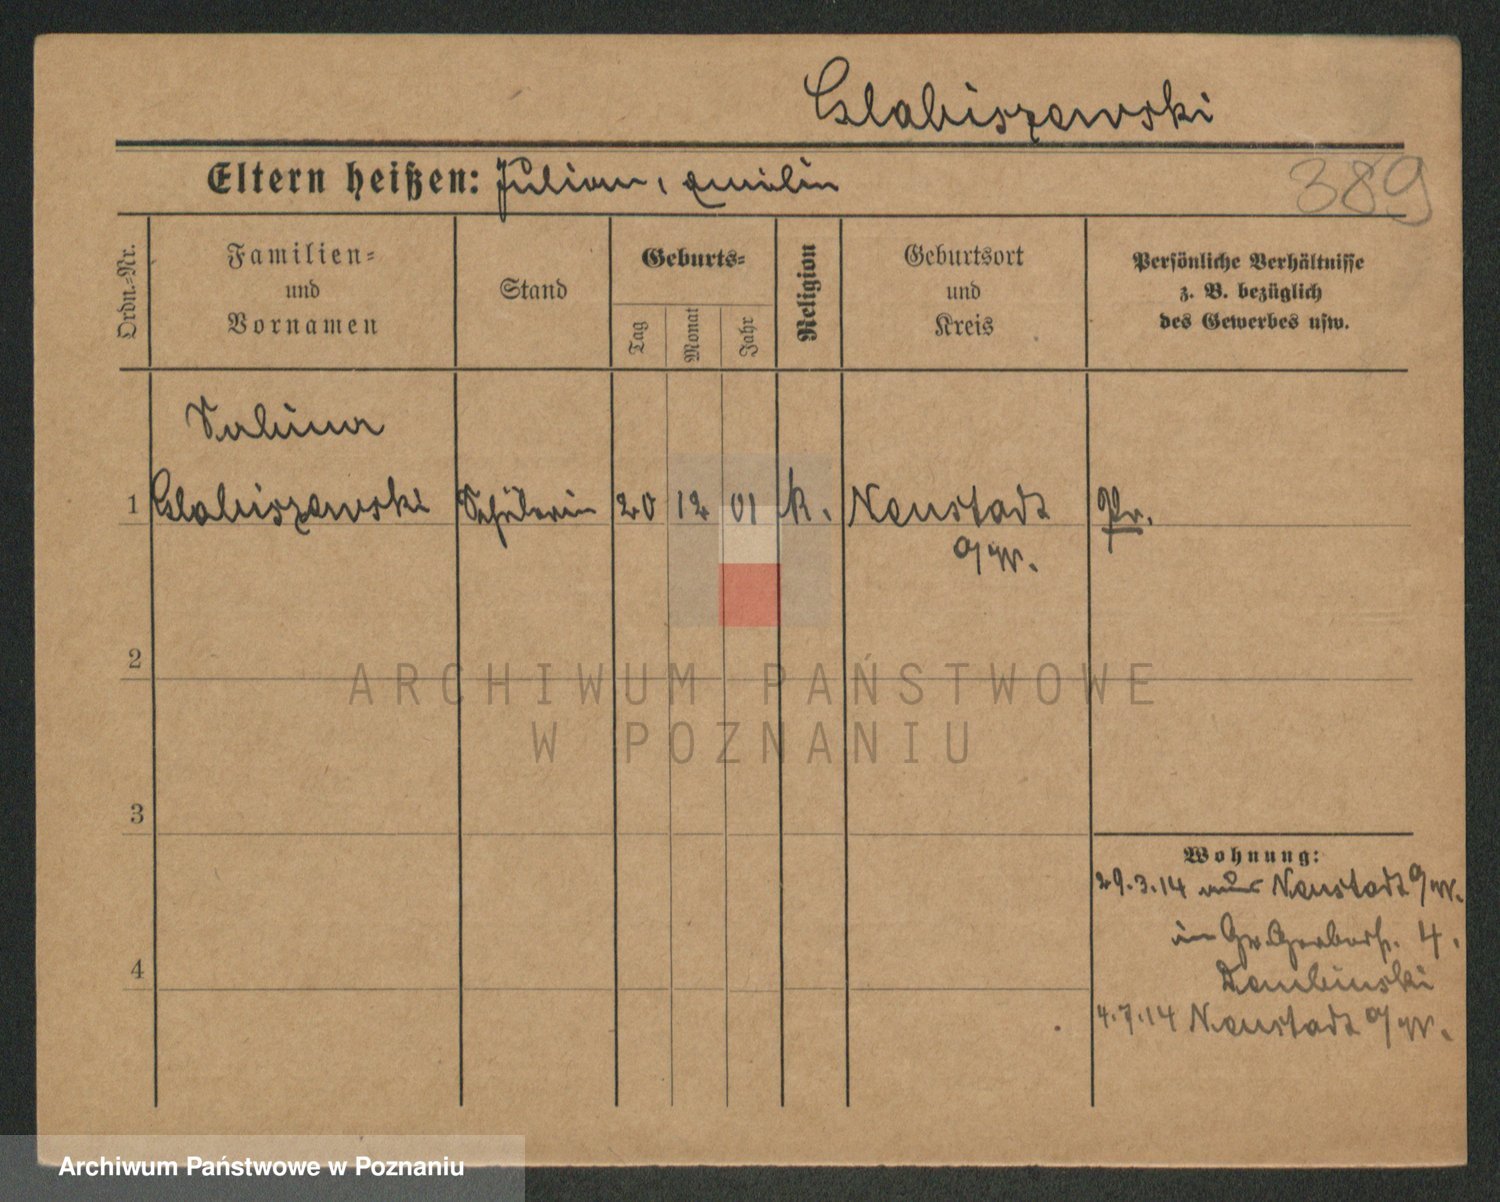 Glabiszewski
Eltern heißen: Julian, Emilie
389
Ordn.-Nr.
Familien-
und
Vornamen
Stand
Geburts-
Tag
Monat
Jahr
Religion
Geburtsort
und
Kreis
Persönliche Verhältnisse
z. B. bezüglich
des Gewerbes usw.
Sabina
1 Glabiszewski Schülerin 20 12 01 k. Neustadt Pr.
a/W.
2
ARCHIWUM PAŃSTWOWE
W POZNANIU
3
Wohnung:
29.3.14 aus Neustadt a/W.
in Gr. Gerberstr. 4.
4
Dembinski
4.7.14 Neustadt a/W.
Archiwum Państwowe w Poznaniu